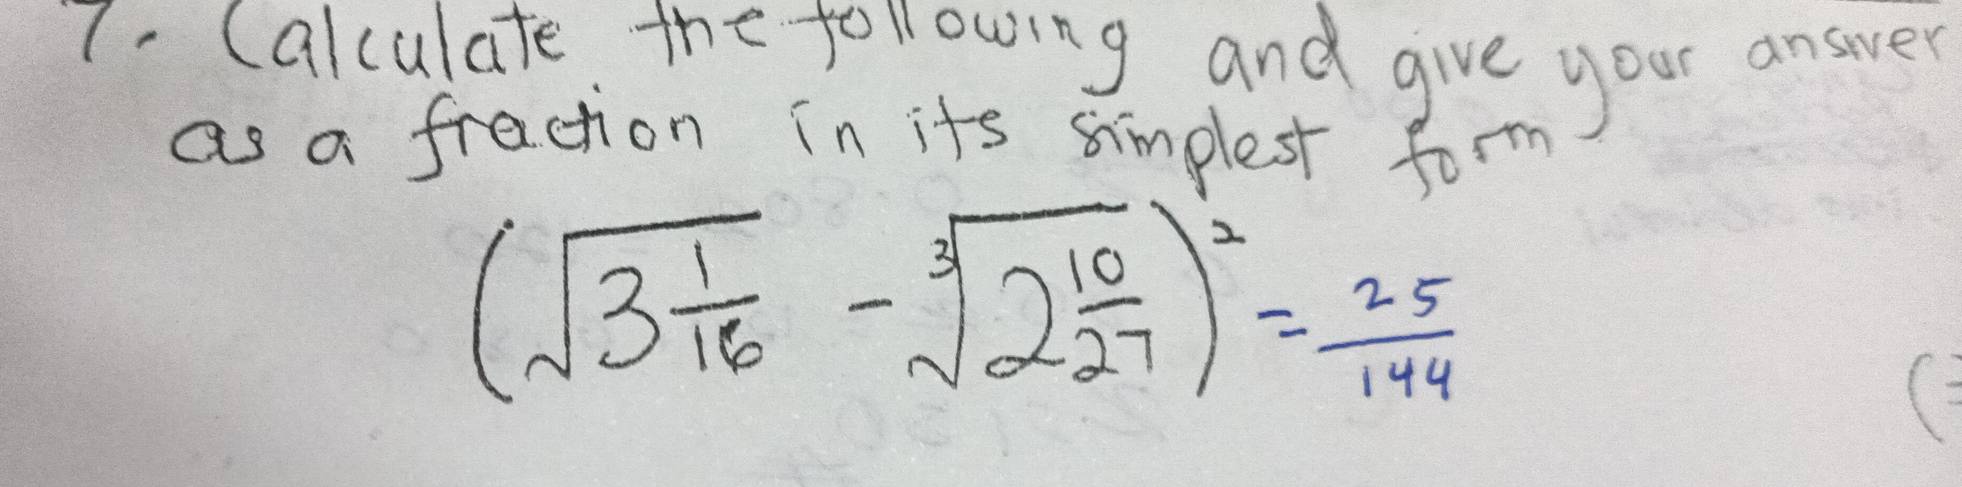 7. Calculate the following and give your answer
as a fraction in its simplest form
(√3 1/16 - ³√2 10/27)² = 25/144